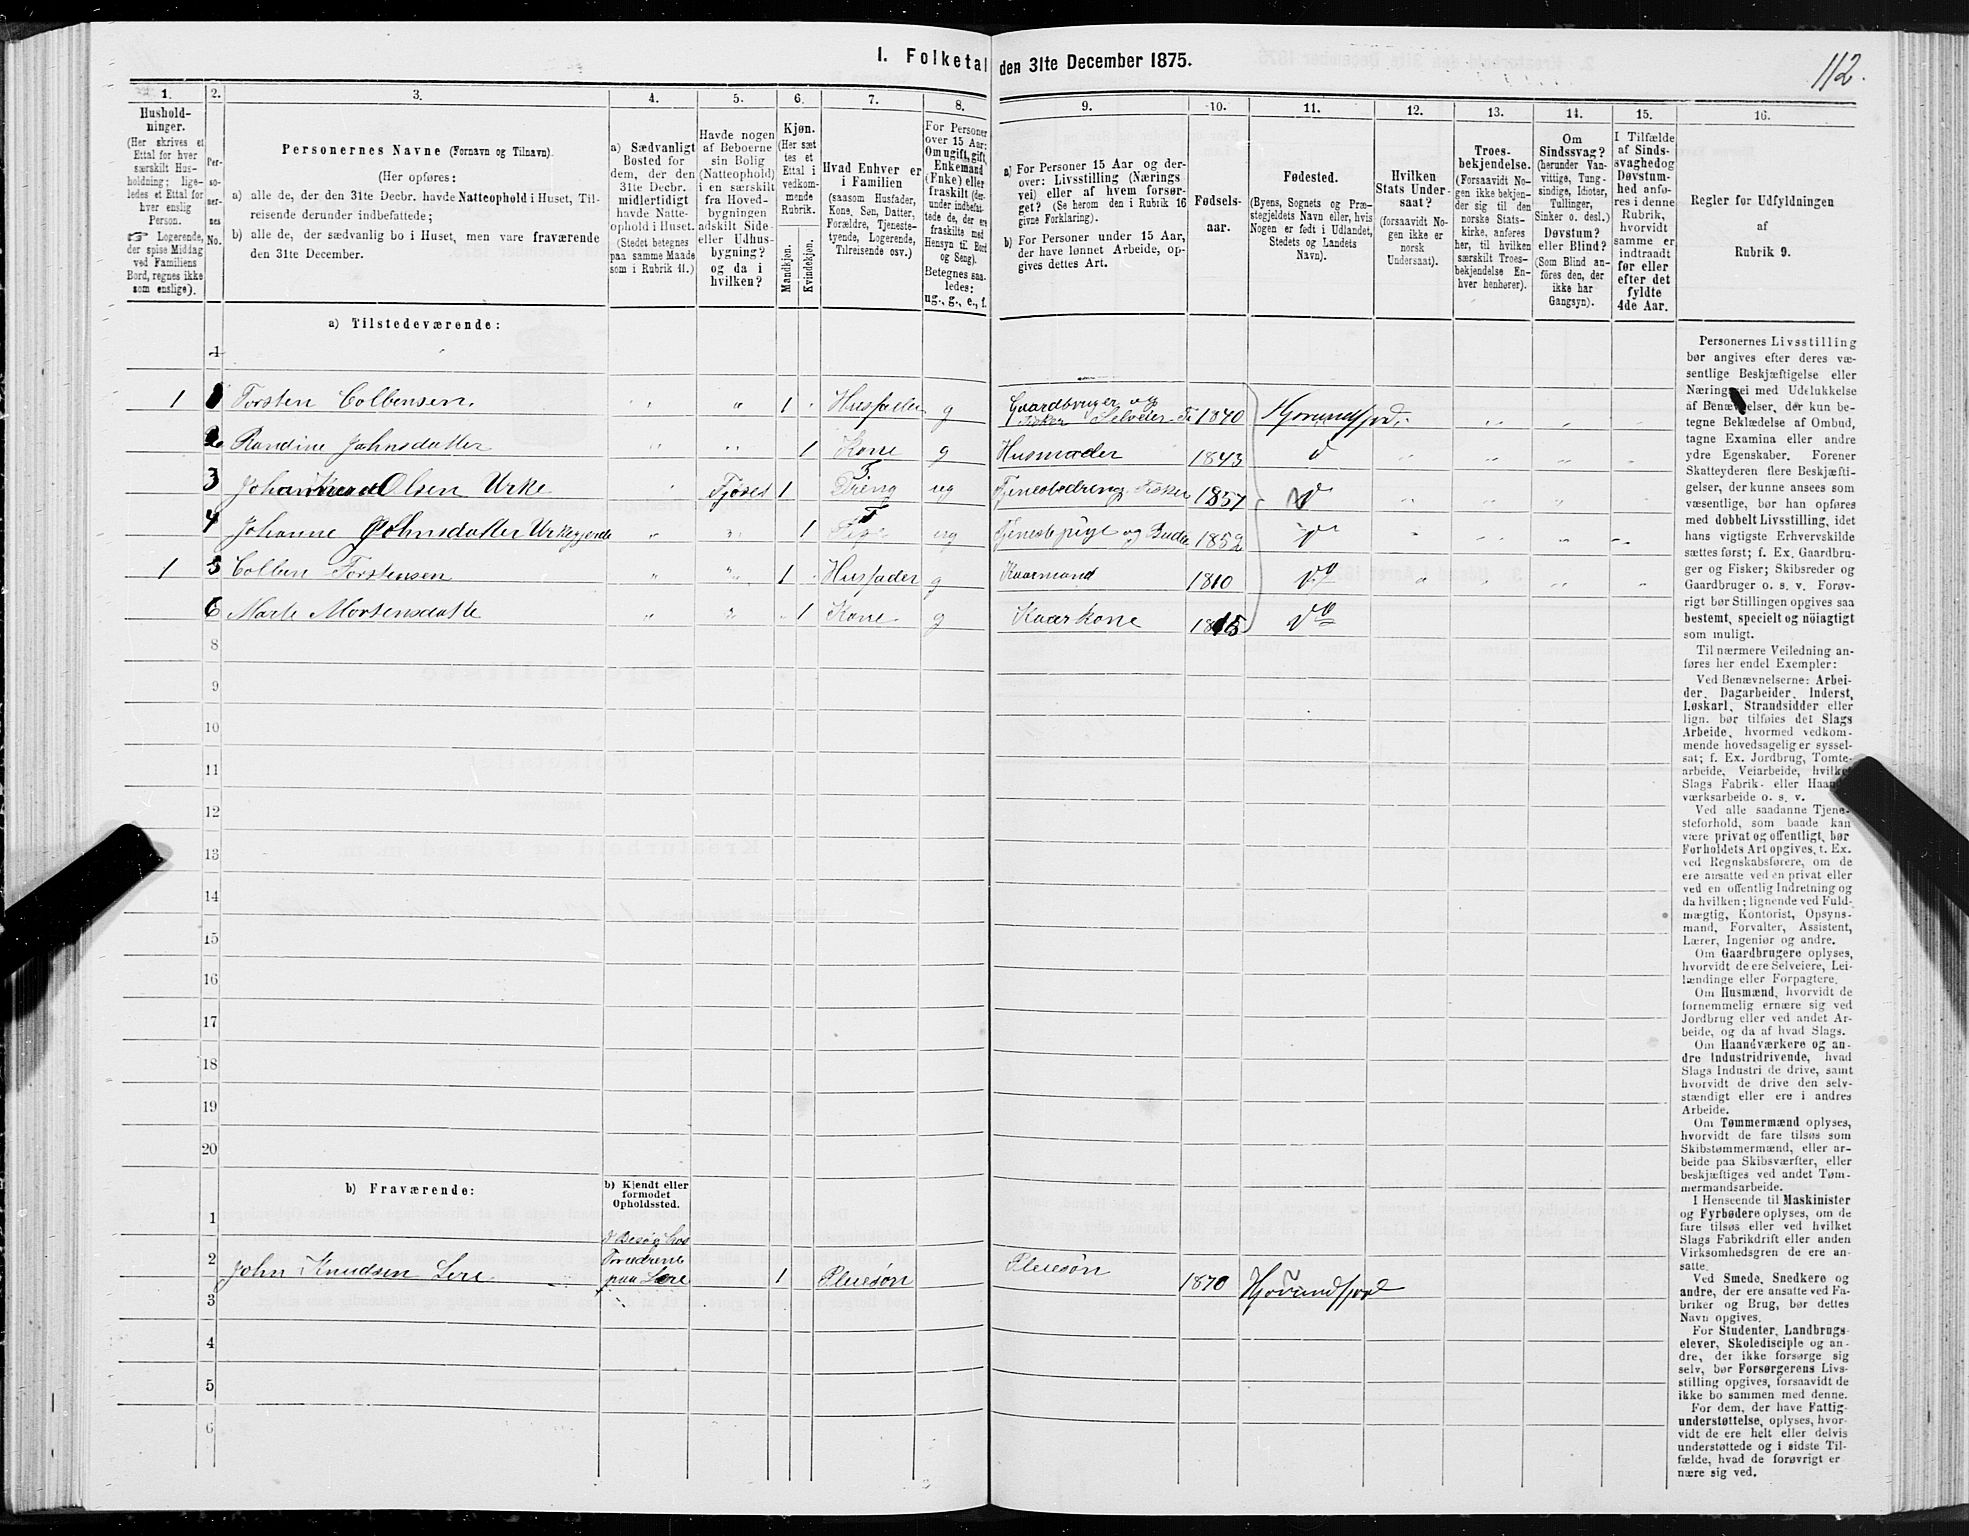 I. Folketal den 31te December 1875.
112.
1.
Hushold-
ninger.
(Her skrives et
Ettal for hver
særskilt Hus-
holdning; lige-
ledes et Ettal for
hver enslig
Person.
☞ Logerende,
der spise Middag
ved Familiens
Bord, regnes ikke
som enslige).
2.
Per-
so-
ner-
nes
No.
3.
Personernes Navne (Fornavn og Tilnavn).
(Her opføres:
a) alle de, der den 31te Decbr. havde Natteophold i Huset, Til-
reisende derunder indbefattede;
b) alle de, der sædvanlig bo i Huset, men vare fraværende
den 31te December.
4.
a) Sædvanligt
Bosted for
dem, der den
31te Decbr.
midlertidigt
havde Natte-
ophold i Huset.
(Stedet betegnes
paa samme Maade
som i Rubrik 11.)
5.
Havde nogen
af Beboerne
sin Bolig
(Natteophold)
i en særskilt
fra Hoved-
bygningen
adskilt Side-
eller Udhus-
bygning?
og da i
hvilken?
6.
Kjøn.
(Her sæt
tes et
Ettal i
vedkom-
mende
Rubrik.
Mandkjøn.
Kvindekjøn.
7.
Hvad Enhver er
i Familien
(saasom Husfader,
Kone, Søn, Datter,
Forældre, Tjeneste-
tyende, Logerende,
Tilreisende osv.)
8.
For Personer
over 15 Aar:
Om ugift, gift,
Enkemand
(Enke) eller
fraskilt (der-
under indbefat-
tede de, der ere
fraskilte med
Hensyn til Bord
og Seng).
Betegnes saa-
ledes:
ug., g., e., f.
9.
a) For Personer 15 Aar og der-
over: Livsstilling (Nærings
vei) eller af hvem forsør-
get? (Se herom den i Rubrik 16
givne Forklaring).
b) For Personer under 15 Aar,
der have lønnet Arbeide, op-
gives dettes Art.
10.
Fødsels-
aar.
11.
Fødested.
(Byens, Sognets og Præ-
stegjeldets Navn eller, hvis
Nogen er født i Udlandet,
Stedets og Landets
Navn).
12.
Hvilken
Stats Under-
saat?
(forsaavidt No-
gen ikke er
norsk
Undersaat).
13.
Troes-
bekjendelse.
(Forsaavidt No-
gen ikke bekjen-
der sig til den
norske Stats-
kirke, anføres
her, til hvilken
særskilt Troes-
bekjendelse En-
hver henhører).
14.
Om
Sindssvag?
(herunder Van-
vittige, Tung-
sindige, Idioter,
Tullinger,
Sinker o. desl.)
Døvstum?
eller Blind?
(Som Blind an-
føres den, der
ikke har
Gangsyn).
15.
I Tilfælde
af Sinds-
svaghed og
Døvstum-
hed anfø-
res i denne
Rubrik,
hvorvidt
samme er
indtraadt
før eller
efter det
fyldte
4de Aar.
16.
Regler for Udfyldningen
af
Rubrik 9.
a) Tilstedeværende:
1 1 Torsten Colbensen. 1 Husfader g Gaardbruger og Fisker Selveier 1840 Hjorundfjord
2 Randine Johnsdatter 1 Kone g Husmoder 1843 do
3 Olsen Urke Fjøset 1 T Dreng ug Tjenestedreng Fisker 1857 do
4 Johanne Johnsdatter Urkegjerde 1 T Pige ug Tjenestepige og Budeie 1852 do
1 5 Colben Torstensen 1 Husfader g Kaarmand 1810 do
6 Marte Mortensdatte 1 Kone g Kaarkone 1815 do
8
9
10
11
12
13
14
15
16
17
18
19
20
b) Fraværende:
b) Kjendt eller
formodet
Opholdssted.
1
2 John Knudsen Lere Besøg hos Forældrene paa Lere 1 Pleiesøn Pleiesøn 1870 Hjørundfjord
3
4
5
6
Personernes Livsstilling
bør angives efter deres væ-
sentlige Beskjæftigelse eller
Næringsvei med Udelukkelse
af Benævnelser, der kun be-
tegne Beklædelse af Ombud,
tagne Examina eller andre
ydre Egenskaber. Forener
Skatteyderen flere Beskjæfti-
gelser, der kunne ansees som
væsentlige, bør han opføres
med dobbelt Livsstilling, idet
hans vigtigste Erhvervskilde
sættes først; f. Ex. Gaardbru-
ger og Fisker; Skibsreder og
Gaardbruger o. s. v. Forøv-
rigt bør Stillingen opgives saa
bestemt, specielt og nöiagtigt
som muligt.
Til nærmere Veiledning an-
føres her endel Exempler:
Ved Benævnelserne: Arbei-
der, Dagarbeider, Inderst,
Løskarl, Strandsidder eller
lign. bør tilføies det Slags
Arbeide, hvormed vedkom-
mende hovedsagelig er syssel-
sat; f. Ex. Jordbrug, Tomte-
arbeide, Veiarbeide, hvilket
Slags Fabrik- eller Haand-
værksarbeide o. s. v.
Ved alle saadanne Tjene-
steforhold, som baade kan
være privat og offentligt, bør
Forholdets Art opgives, t. Ex.
ved Regnskabsførere, om de
ere ansatte ved en privat eller
ved en offentlig Indretning og
da hvilken; lignende ved Fuld-
mægtig, Kontorist, Opsyns-
mand, Forvalter, Assistent,
Lærer, Ingeniør og andre.
Om Gaardbrugere oplyses,
hvorvidt de ere Selveiere, Lei-
lændinge eller Forpagtere.
Om Husmænd, hvorvidt de
fornemmelig ernære sig ved
Jordbrug eller ved andet Ar-
beide, og da af hvad Slags.
Om Haandværkere og an-
dre Industridrivende, hvad
Slags Industri de drive, samt
hvorvidt de drive den selv-
stændigt eller ere i andres
Arbeide.
Om Tømmermænd oplyses,
hvorvidt de fare tilsøs som
Skibstømmermænd, eller ar-
beide paa Skibsværfter, eller
beskjæftiges ved andet Tøm-
mermandsarbeide.
I Henseende til Maskinister
og Fyrbødere oplyses, om de
fare tilsøs eller ved hvilket
Slags Fabrikdrift eller anden
Virksomhedsgren de ere an-
satte.
Ved Smede, Snedkere og
andre, der ere ansatte ved Fa-
briker og Brug, bør dettes
Navn opgives.
For Studenter, Landbrugs-
elever, Skoledisciple og an-
dre, der ikke forsørge sig
selv, bør Forsørgerens Livs-
stilling opgives, forsaavidt de
ikke bo sammen med denne.
For dem, der have Fattig-
understøttelse, oplyses, hvor-
vidt de ere helt eller delvis
understøttede og i sidste Til-
fælde, hvad de forøvrigt er
nære sig ved.